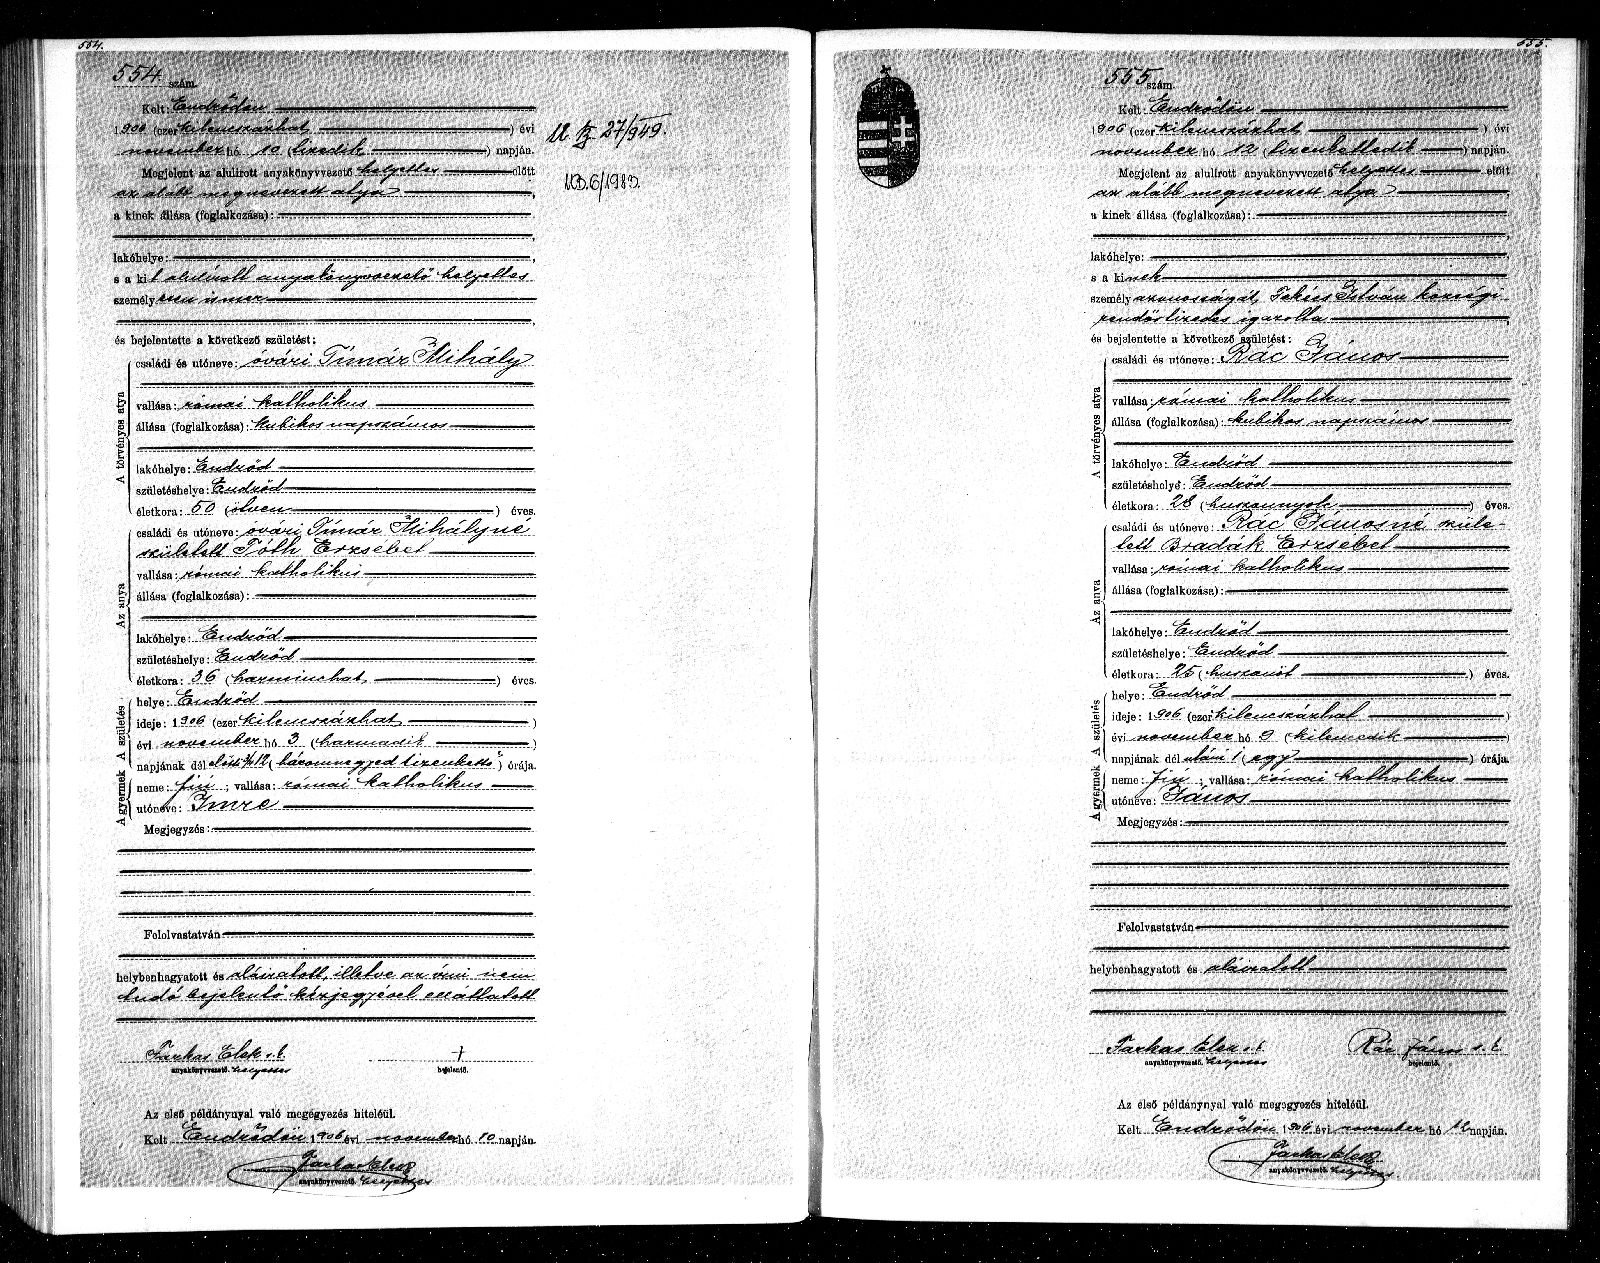 554.
554 szám.
Kelt: Endrődön
1906 (ezer kilencszázhat) évi
november hó 10 (tizedik) napján.
Megjelent az alulirott anyakönyvvezető helyettes előtt
az alább megnevezett atya,
a kinek állása (foglalkozása):
lakóhelye:
s a kit alulírott anyakönyvvezető helyettes
személyesen ismer
és bejelentette a következő születést:
A törvényes atya
családi és utóneve: óvári Tímár Mihály
vallása: római katholikus
állása (foglalkozása): kubikos napszámos
lakóhelye: Endrőd
születéshelye: Endrőd
életkora: 50 (ötven) éves.
Az anya
családi és utóneve: óvári Tímár Mihályné
született Tóth Erzsébet
vallása: római katholikus
állása (foglalkozása):
lakóhelye: Endrőd
születéshelye: Endrőd
életkora: 36 (harminchat) éves.
A születés
helye: Endrőd
ideje: 1906 (ezer kilencszázhat)
évi november hó 3 (harmadik)
napjának dél előtt ¾12 (háromnegyed tizenkettő) órája.
A gyermek
neme: fiú; vallása: római katholikus
utóneve: Imre
Megjegyzés:
Felolvastatván
helybenhagyatott és aláiratott, illetve az írni nem
tudó bejelentő kézjegyével elláttatott
Farkas Elek s.k. +
anyakönyvvezető. helyettes bejelentő.
Az első példánynyal való megegyezés hiteléül.
Kelt Endrődön 1906 évi november hó 10 napján.
Farkas Elek
anyakönyvvezető. helyettes
27/949.
6/1983.
555.
555 szám.
Kelt: Endrődön
1906 (ezer kilencszázhat) évi
november hó 12 (tizenkettedik) napján.
Megjelent az alulirott anyakönyvvezető helyettes előtt
az alább megnevezett atya,
a kinek állása (foglalkozása):
lakóhelye:
s a kinek
személyazonosságát, István községi
rendőrtizedes igazolta
és bejelentette a következő születést:
A törvényes atya
családi és utóneve: Rác János
vallása: római katholikus
állása (foglalkozása): kubikos napszámos
lakóhelye: Endrőd
születéshelye: Endrőd
életkora: 28 (huszonnyolc) éves.
Az anya
családi és utóneve: Rác Jánosné szüle-
tett Bradák Erzsébet
vallása: római katholikus
állása (foglalkozása):
lakóhelye: Endrőd
születéshelye: Endrőd
életkora: 25 (huszonöt) éves.
A születés
helye: Endrőd
ideje: 1906 (ezer kilencszázhat)
évi november hó 9 (kilencedik)
napjának dél utáni 1 (egy) órája.
A gyermek
neme: fiú; vallása: római katholikus
utóneve: János
Megjegyzés:
Felolvastatván
helybenhagyatott és aláiratott
Farkas Elek s.k. Rác János s.k.
anyakönyvvezető. helyettes bejelentő.
Az első példánynyal való megegyezés hiteléül.
Kelt Endrődön 1906 évi november hó 12 napján.
Farkas Elek
anyakönyvvezető. helyettes